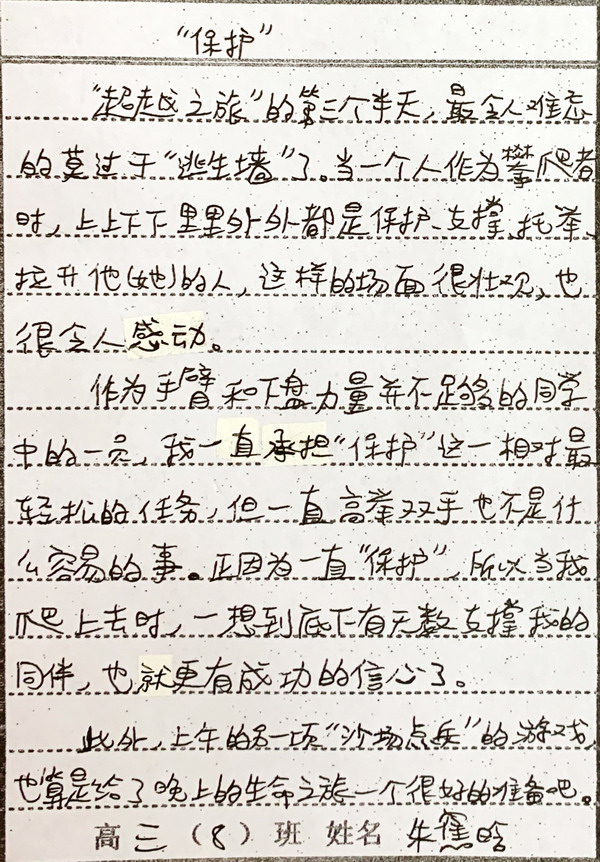 “保护”
“超越之旅”的第三个半天，最令人难忘
的莫过于“逃生墙”了。当一个人作为攀爬者
时，上上下下里里外外都是保护、支撑、托举、
拉升他(她)的人，这样的场面很壮观，也
很令人感动。
作为手臂和下盘力量并不足够的同学
中的一员，我一直承担“保护”这一相对最
轻松的任务，但一直高举双手也不是什
么容易的事。正因为一直“保护”，所以当我
爬上去时，一想到底下有无数支撑我的
同伴，也就更有成功的信心了。
此外，上午的另一项“沙场点兵”的游戏，
也算是给了晚上的生命之旅一个很好的准备吧。
高三（8）班 姓名 朱